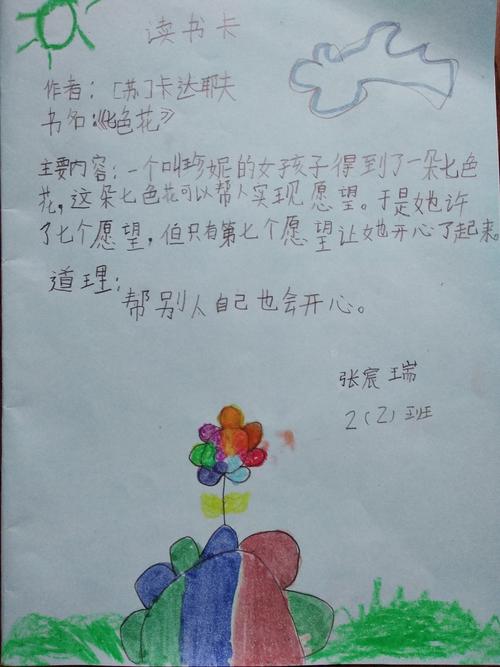 读书卡
作者：[苏]卡达耶夫
书名：《七色花》
主要内容：一个叫珍妮的女孩子得到了一朵七色
花，这朵七色花可以帮人实现愿望。于是她许
了七个愿望，但只有第七个愿望让她开心了起来。
道理：
帮别人自己也会开心。
张宸瑞
2（2）班